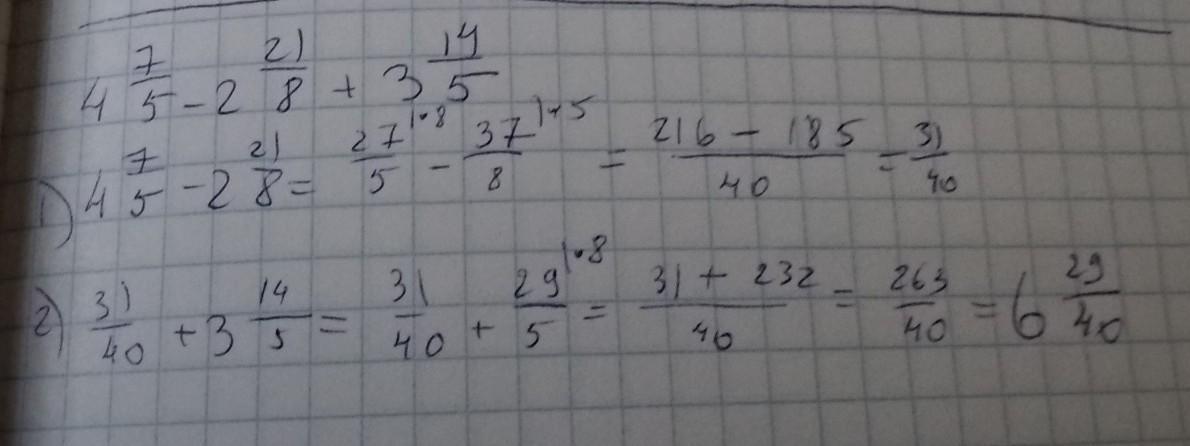 4 7/5 - 2 21/8 + 3 14/5
1) 4 7/5 - 2 21/8 = 27/5 |·8 - 37/8 |·5 = 216 - 185/40 = 31/40
2) 31/40 + 3 14/5 = 31/40 + 29/5 |·8 = 31 + 232/40 = 263/40 = 6 29/40